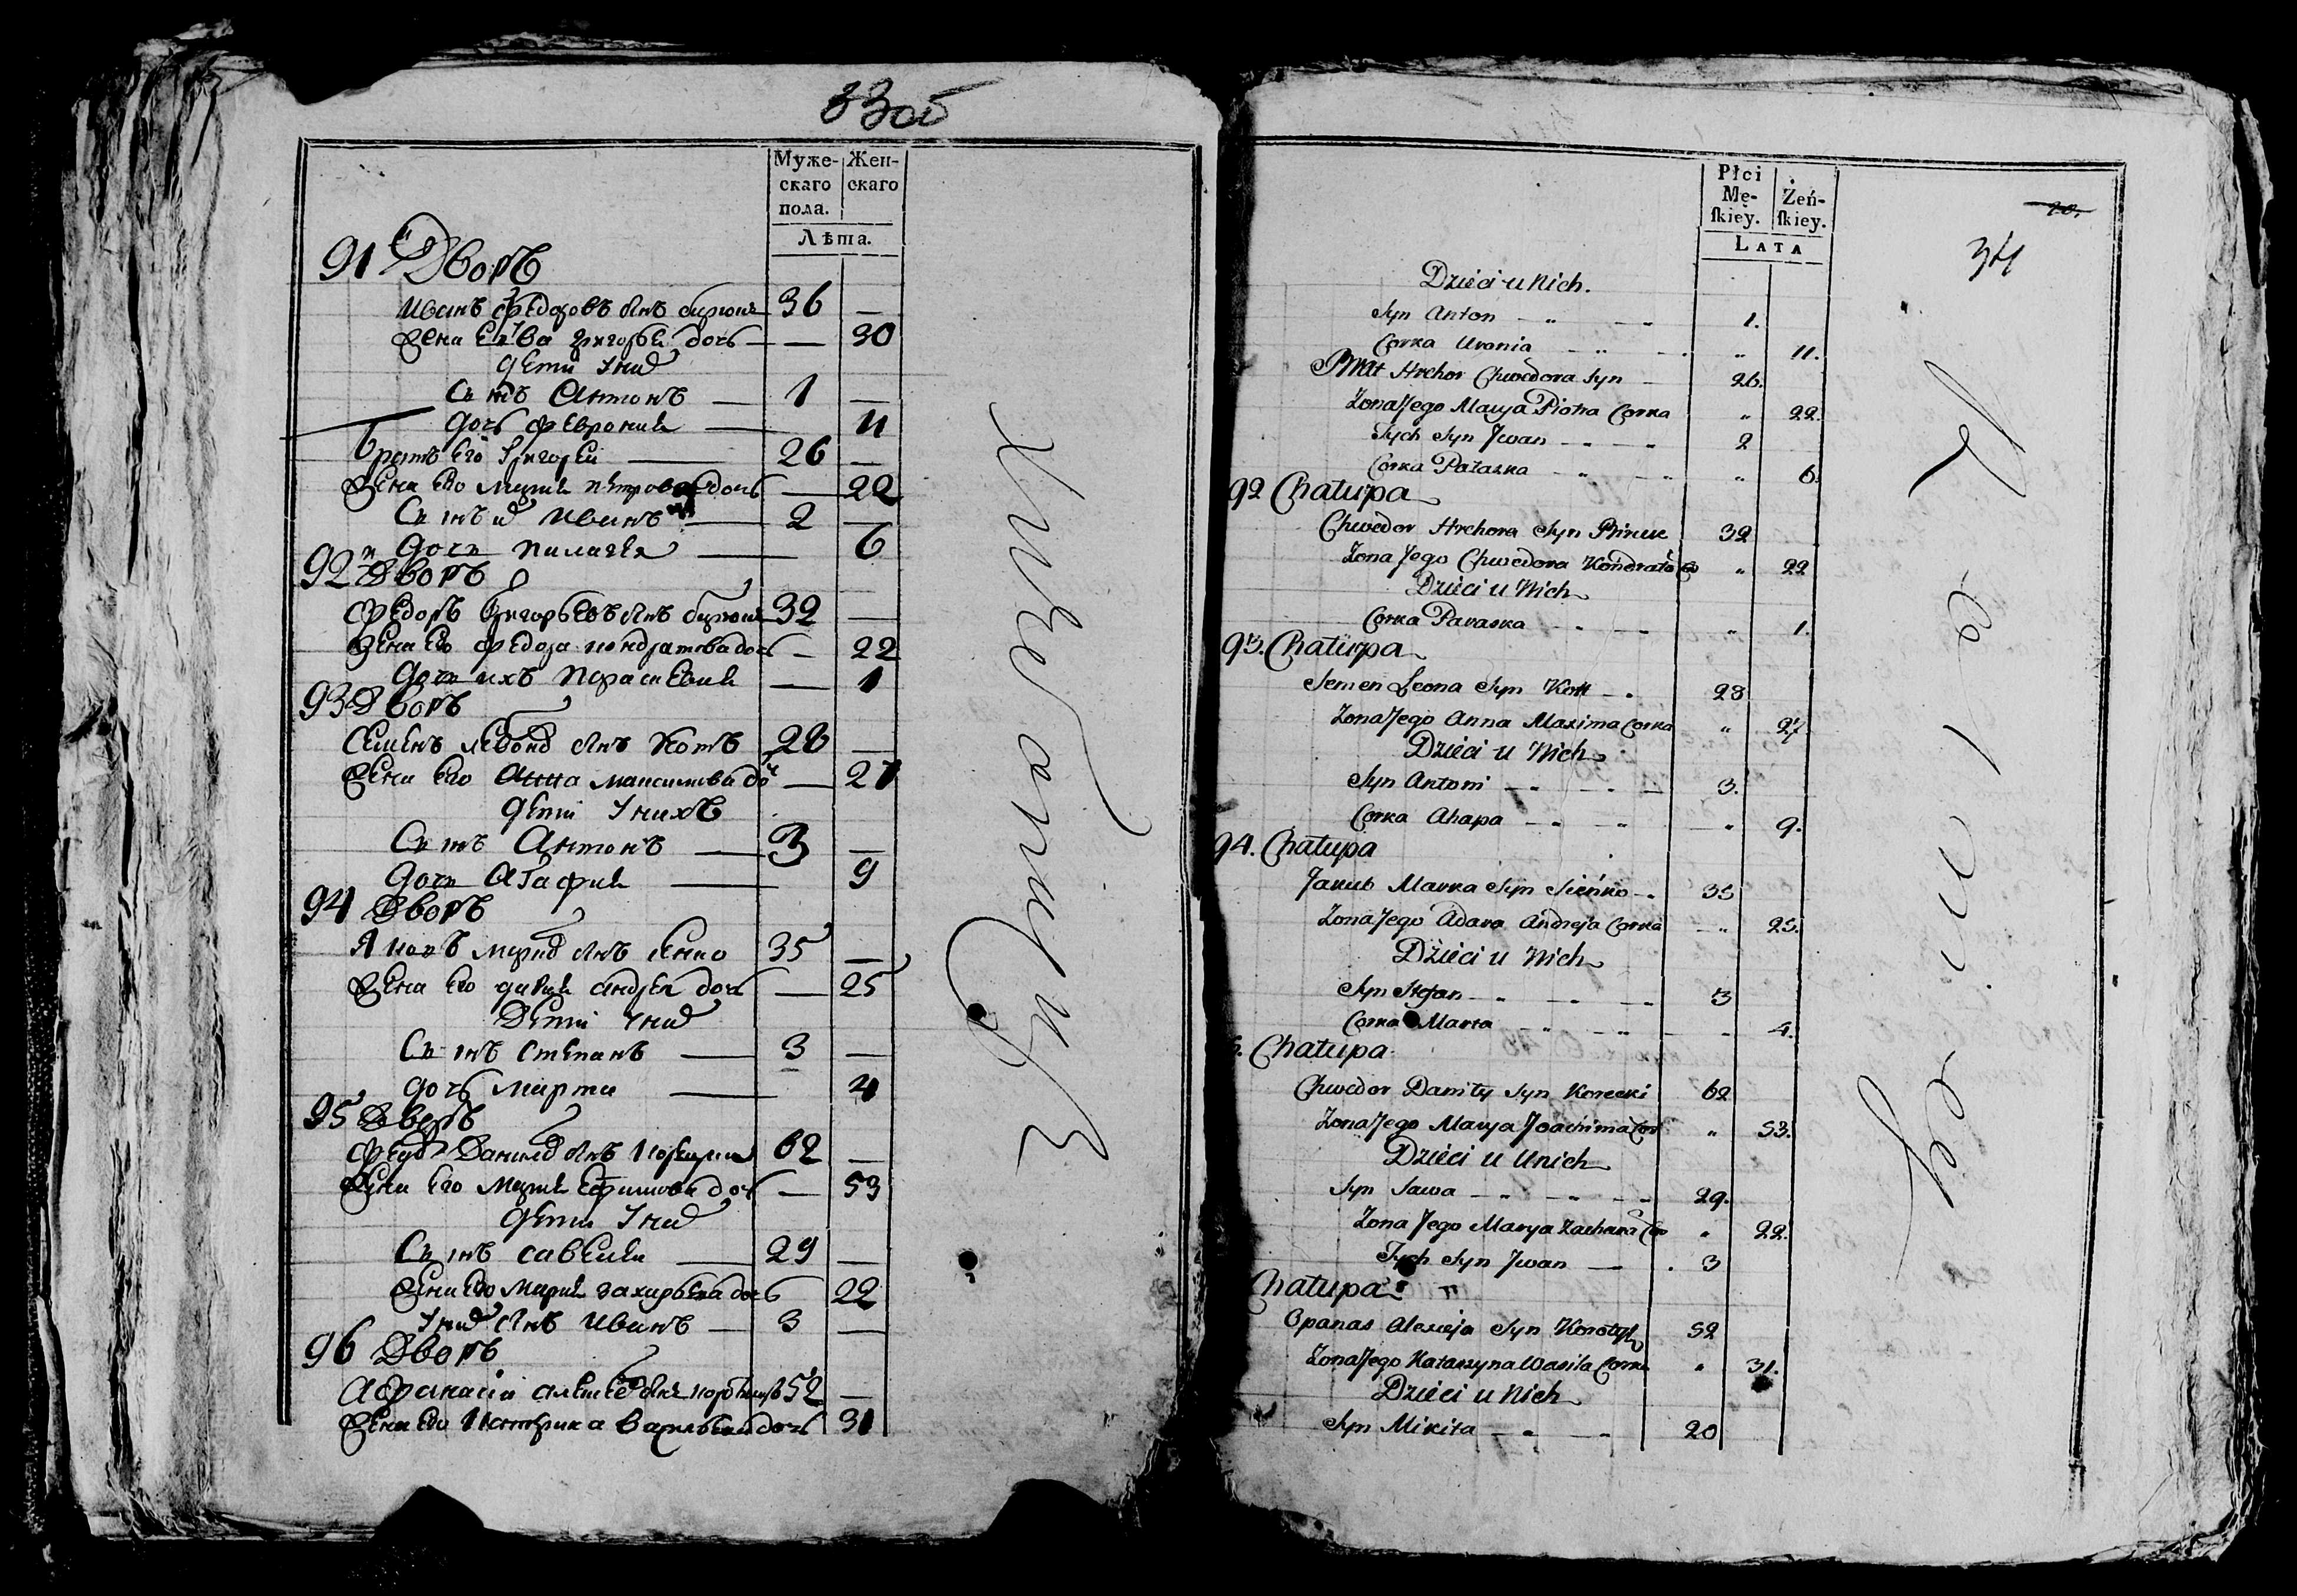 33об
Муже-
скаго
пола.
Жен-
скаго
Лѣта.
91й Дворъ
Иванъ Федоровъ снъ 36 —
Жена Ева Григорьи дочь — — 30
дети
Сынъ Антонъ — 1 —
дочь Феврония — 11
братъ его Григорей — 26 —
Жена его Мария Петрова дочь — 22
Сынъ Иванъ — 2 —
дочь Палагея — 6
92й Дворъ
Федоръ Григорьевъ снъ 32 —
Жена его Федора Кондратова дочь — 22
дочь ихъ Парасковия — 1
93 Дворъ
Семенъ снъ Котъ 28 —
Жена его Анна Максимова доч — 27
дети у нихъ
Сынъ Антонъ — 3 —
дочь Агафия — 9
94 Дворъ
Яковъ снъ Сенко 35 —
Жена его Андрея дочь — 25
Дети
Сынъ Степанъ — 3 —
дочь Марта — 4
95 Дворъ
снъ 62 —
Жена его Мария Ефимова дочь — 53
дети
Сынъ Савелий — 29 —
Жена его Мария Захарьева дочь 22
снъ Иванъ — 3 —
96 Дворъ
Афанасий 52 —
Жена его Катерина Васильева дочь 31
Płci
Mę-
ſkiey.
Żeń-
ſkiey.
LATA
20.
34
Dzieci u Nich.
Syn Anton — „ — 1.
Corka Urania — „ — „ 11.
Brat Hrehor Chwedora Syn — 26.
Zona Jego Marya Piotra Corka „ 22.
Tych Syn Jwan — „ — 2
Corka Pałaska — „ — „ 6.
92 Chałupa
Chwedor Hrehora Syn 32
Zona Jego Chwedora Kondrata Co „ 22
Dzieci u Nich
Corka Paraska — „ — „ 1.
93. Chałupa
Semen Leona Syn Kott — „ 28
Zona Jego Anna Maxima Corka „ 27.
Dzieci u Nich
Syn Antoni — „ — 3.
Corka Ahapa — „ — „ 9.
94. Chałupa
Jakub Marka Syn Sieńko — „ 35
Zona Jego Andreja Corka — „ 25.
Dzieci u Nich
Syn Stefan — „ — 3
Corka Marta — „ — „ — 4.
Chałupa
Chwedor Daniły Syn Korecki 62
Zona Jego Marya Joachima Cor „ 53.
Dzieci u Unich
Syn Sawa — „ — „ — 29.
Zona Jego Marya Zachara Co „ 22.
Tych Syn Jwan — . 3
Chatupa
Opanas Alexieja Syn 52
Zona Jego Katarzyna Wasila Corka „ 31.
Dzieci u Nich
Syn Mikita — „ — „ 20